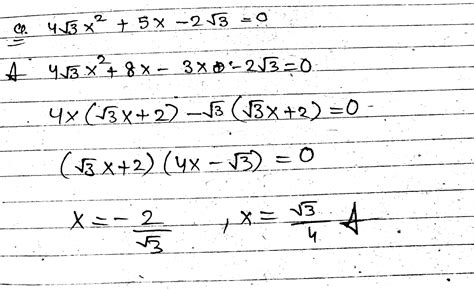 Q. 4√3x² + 5x - 2√3 = 0
A 4√3x² + 8x - 3x - 2√3 = 0
4x(√3x+2) - √3(√3x+2) = 0
(√3x+2)(4x-√3) = 0
x = -2/√3 , x = √3/4 A